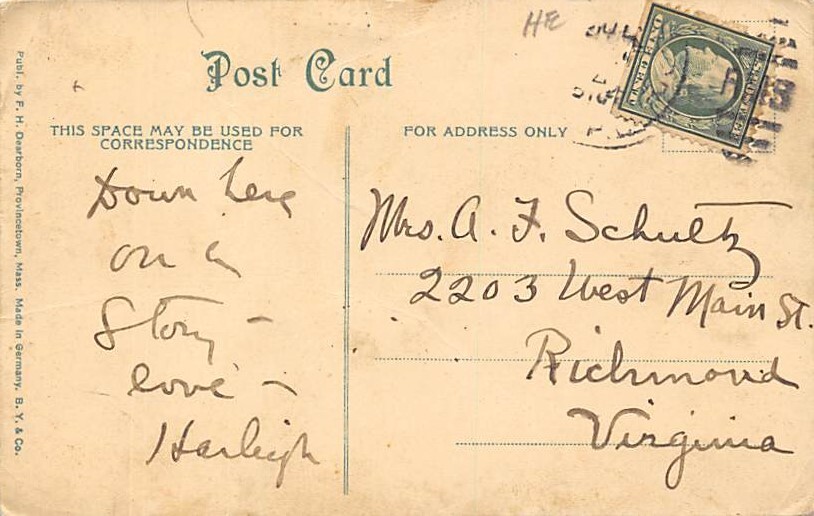 HE
Post Card
THIS SPACE MAY BE USED FOR
CORRESPONDENCE
FOR ADDRESS ONLY
Down here
on a
Story –
love –
Harleigh
Mrs. A. F. Schultz
2203 West Main St.
Richmond
Virginia
Publ. by F. H. Dearborn, Provincetown, Mass. Made in Germany. B. Y. & Co.